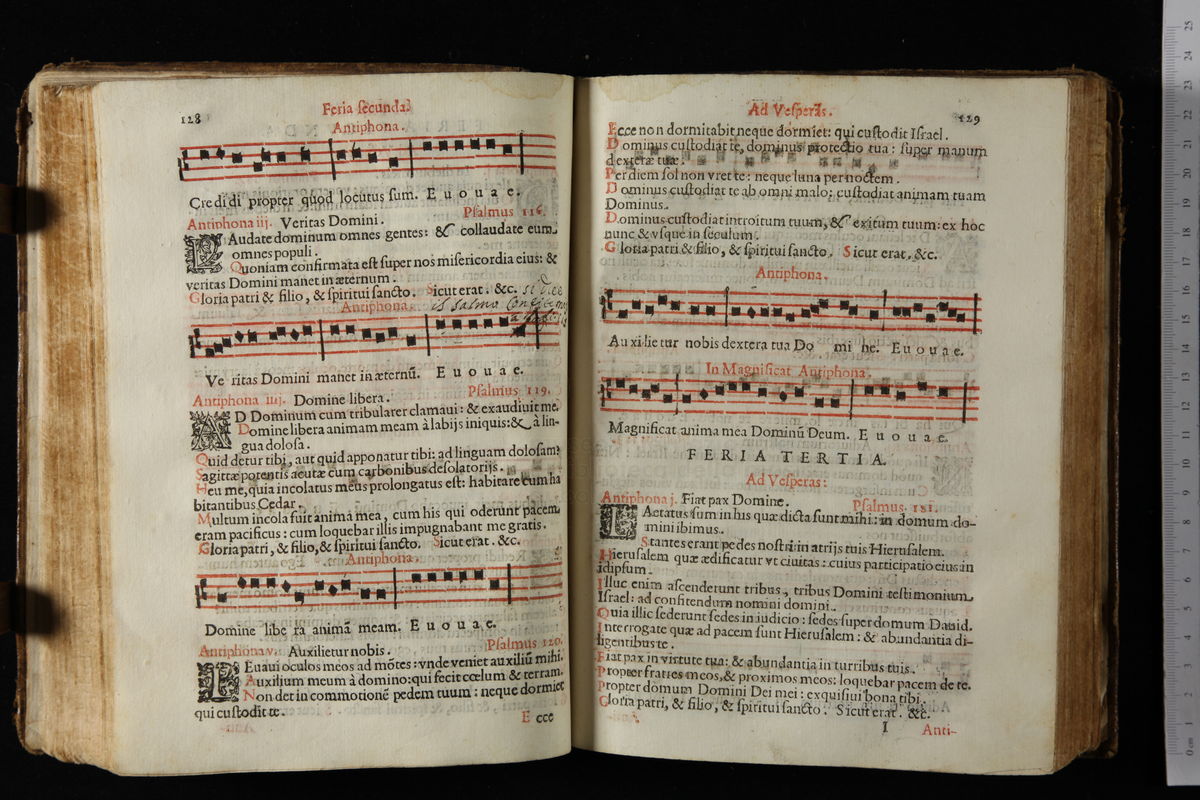 128
Feria secunda.
Antiphona.
Credidi propter quod locutus sum. E u o u a e.
Antiphona iij. Veritas Domini. Psalmus 116.
LAudate dominum omnes gentes: & collaudate eum
omnes populi.
Quoniam confirmata est super nos misericordia eius: &
veritas Domini manet in æternum.
Gloria patri & filio, & spiritui sancto. Sicut erat. &c. si dice
Antiphona. il salmo
Ve ritas Domini manet in æternũ. E u o u a e.
Antiphona iiij. Domine libera. Psalmus 119.
AD Dominum cum tribularer clamaui: & exaudiuit me.
Domine libera animam meam à labijs iniquis: & à lin-
gua dolosa.
Quid detur tibi, aut quid apponatur tibi: ad linguam dolosam?
Sagittæ potentis acutæ cum carbonibus desolatorijs.
Heu me, quia incolatus meus prolongatus est: habitare cum ha
bitantibus Cedar.
Multum incola fuit anima mea, cum his qui oderunt pacem
eram pacificus: cum loquebar illis impugnabant me gratis.
Gloria patri, & filio, & spiritui sancto. Sicut erat. &c.
Antiphona.
Domine libe ra animã meam. E u o u a e.
Antiphona v. Auxilietur nobis. Psalmus 120.
LEuaui oculos meos ad mõtes: vnde veniet auxiliũ mihi.
Auxilium meum à domino: qui fecit cœlum & terram.
Non det in commotionē pedem tuum: neque dormiet
qui custodit te.
Ecce
Ad Vesperas.
129
Ecce non dormitabit neque dormiet: qui custodit Israel.
Dominus custodiat te, dominus protectio tua: super manum
dexteræ tuæ.
Per diem sol non vret te: neque luna per noctem.
Dominus custodiat te ab omni malo: custodiat animam tuam
Dominus.
Dominus custodiat introitum tuum, & exitum tuum: ex hoc
nunc & vsque in seculum.
Gloria patri & filio, & spiritui sancto. Sicut erat. &c.
Antiphona.
Au xi lie tur nobis dextera tua Do mi ne. E u o u a e.
In Magnificat Antiphona.
Magnificat anima mea Dominũ Deum. E u o u a e.
FERIA TERTIA.
Ad Vesperas:
Antiphona j. Fiat pax Domine. Psalmus 121.
LAetatus sum in his quæ dicta sunt mihi: in domum do-
mini ibimus.
Stantes erant pedes nostri: in atrijs tuis Hierusalem.
Hierusalem quæ ædificatur vt ciuitas: cuius participatio eius in
idipsum.
Illuc enim ascenderunt tribus, tribus Domini testimonium
Israel: ad confitendum nomini domini.
Quia illic sederunt sedes in iudicio: sedes super domum Dauid.
Interrogate quæ ad pacem sunt Hierusalem: & abundantia di-
ligentibus te.
Fiat pax in virtute tua: & abundantia in turribus tuis.
Propter fratres meos, & proximos meos: loquebar pacem de te.
Propter domum Domini Dei mei: exquisiui bona tibi.
Gloria patri, & filio, & spiritui sancto. Sicut erat. &c.
I Anti-